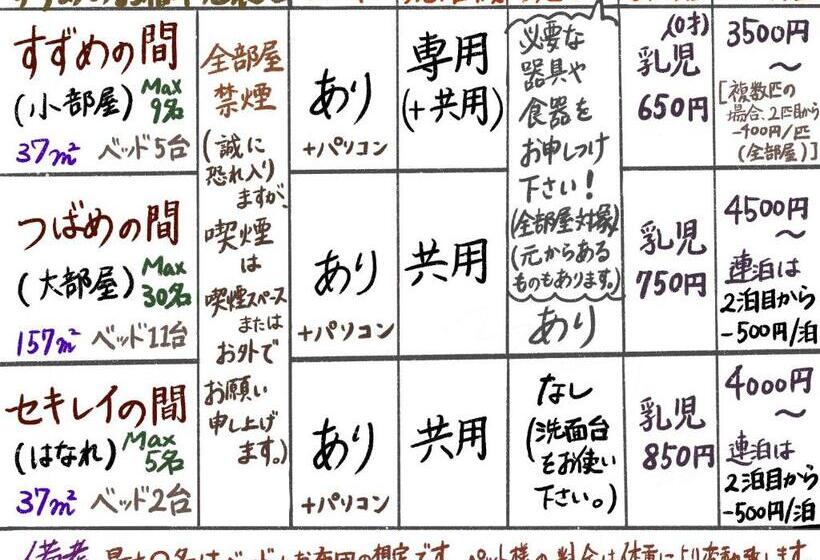 すずめの間
(小部屋) Max
9名
37㎡ ベッド5台
全部屋
禁煙
(誠に
恐れ入り
ますが、
喫煙
は
喫煙スペース
または
お外で
お願い
申し上げ
ます。)
あり
+パソコン
専用
(+共用)
必要な
器具や
食器を
お申しつけ
下さい!
(全部屋対象)
(元からある
ものもあります。)
(0才)
乳児
650円
3500円
〜
[複数匹の
場合、2匹目から
-400円/匹
(全部屋)]
つばめの間
(大部屋) Max
30名
157㎡ ベッド11台
あり
+パソコン
共用
あり
乳児
750円
4500円
〜
連泊は
2泊目から
-500円/泊
セキレイの間
(はなれ) Max
5名
37㎡ ベッド2台
あり
+パソコン
共用
なし
(洗面台
をお使い
下さい。)
乳児
850円
4000円
〜
連泊は
2泊目から
-500円/泊